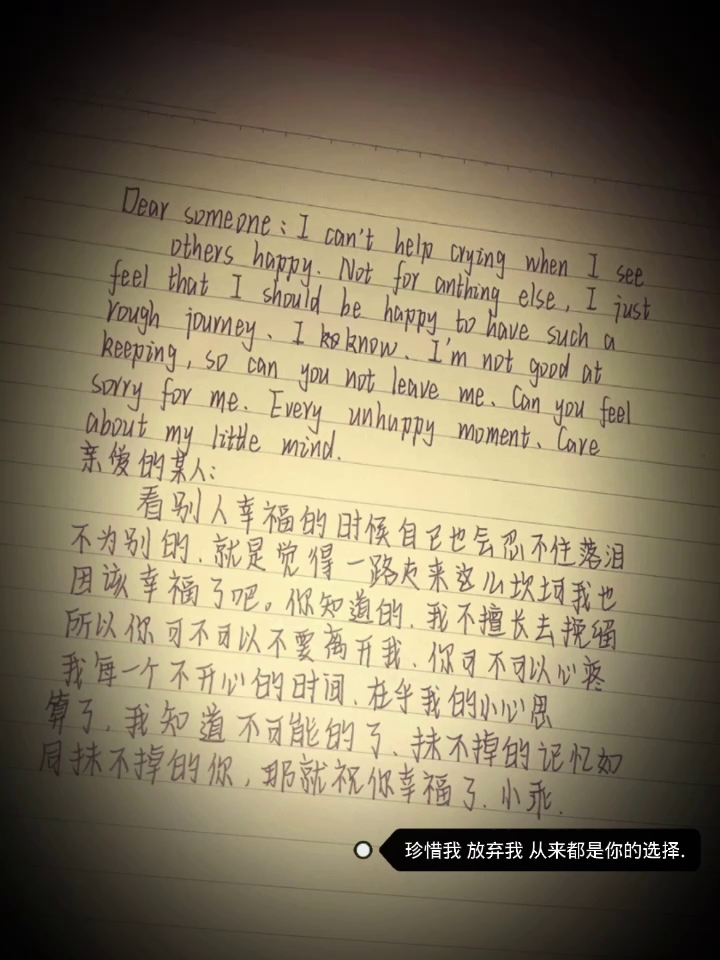 Dear someone: I can't help crying when I see
others happy. Not for anthing else, I just
feel that I should be happy to have such a
rough journey. I know. I'm not good at
keeping, so can you not leave me. Can you feel
sorry for me. Every unhappy moment. Care
about my little mind.
亲爱的某人:
看别人幸福的时候自己也会忍不住落泪
不为别的.就是觉得一路走来这么坎坷我也
因该幸福了吧。你知道的.我不擅长去挽留
所以你可不可以不要离开我.你可不可以心疼
我每一个不开心的时间.在乎我的小心思
算了.我知道不可能的了.抹不掉的记忆如
同抹不掉的你,那就祝你幸福了.小乖.
珍惜我 放弃我 从来都是你的选择.